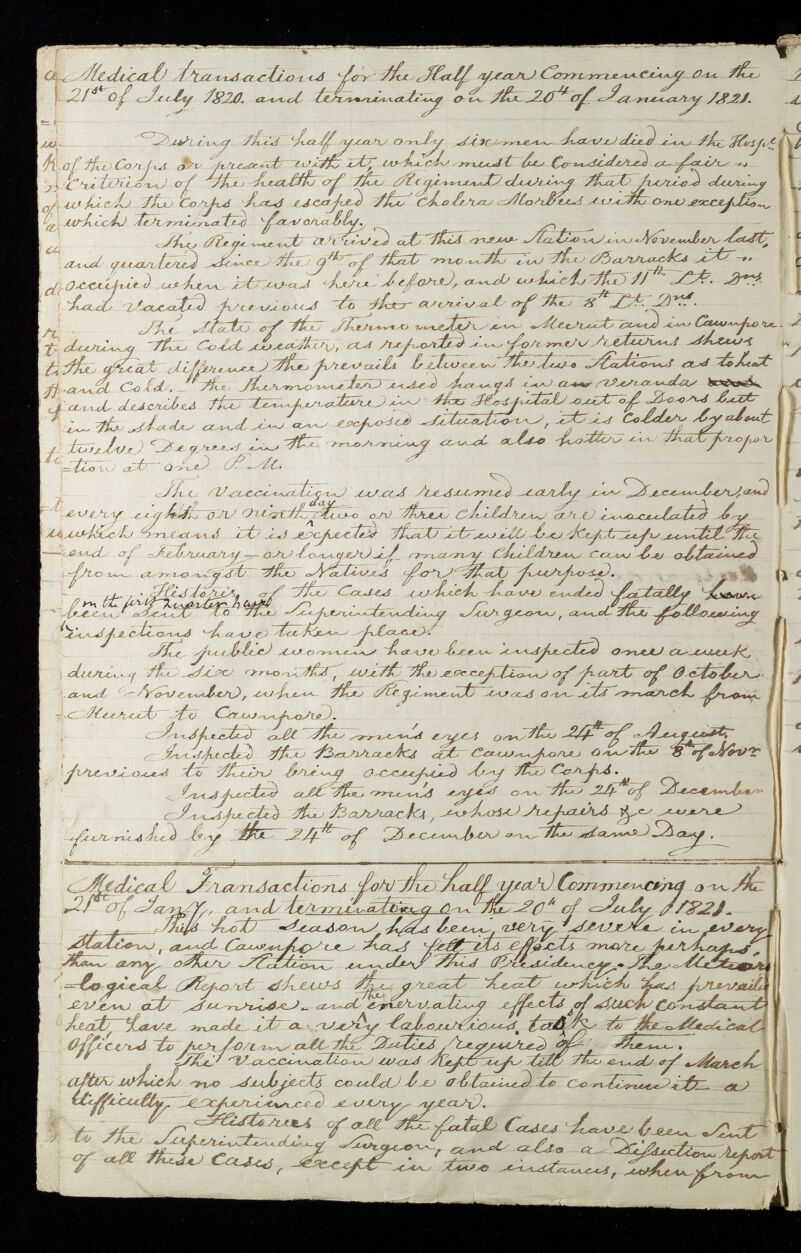 Medical transactions for the Half year Commencing on the
21st of July 1820. and terminating on the 20th of January 1821.
During this half year only six men have died in the Hospl.
of the Corps or preasent with it, which must be Considered a fair "
Criterion of the health of the Regiment during that period during
which the Corps has escaped the Cholera Morbus with one exception
which terminated favorably.
The Regiment arrived at this new Station in November last,
and quartered since the 9th of that month in the Barracks it "
occupied when it was here before, and which the 11th Lt. Dns.
had vacated previous to the arrival of the 8th Lt. Dns.
The State of the Thermometer in Meerut and in Cawnpore
during the Cold weather, as reported in former returns shews
the great difference the prevails between the two Stations as to heat
and Cold. the thermometer used hangs in an veranda
and describes the temperature in the Hospital out of Doors but
in the shade and in an exposed situation, it is Colder by about
twelve Degrees in the morning and also hotter in that propor
=tion at one P.M.
The Vaccination was resumed early in December, and
every eighth or ninth day two or three Children are inoculated by
which means it is expected that it will be kept up until the
end of February - or longer if many Children can be obtained
from amongst the Natives for that purpose.
Histories of the Cases which have ended fatally have
in the first Quarter have
been sent to the Superintending Surgeon, and the following
inspections have taken place.
The public women have been inspected once a week
during the six months, with the exception of part of October
and November, when the Regiment was on its march from
Murut to Cawnpore.
Inspected all the men's eyes on the 24th of August.
Inspected the Barracks at Cawnpore on the 8th of Novr
previous to their bring occupied by the Corps.
Inspected all the men's eyes on the 24th of December
Inspected the Barracks, whose repairs &c were
furnished by the 24th of December on the same Day.
Medical Transactions for the half year Commencing on the
21st of Jany, and terminating on the 20th of July 1821.
This hot Season has been very severe in every
Station, and Cawnpore has felt its effects more perhaps
than any other Station under this Presidency. The Meteoro
=logical Report shews the great heat which has prevailed
even at sunrise - and the enervating effects of such constant
heat have made it a very labourious task to the Medical
Officers to perform all the Duties required of them.
The Vaccination was kept up till the end of March
after which no subjects could be obtained to continue it a
difficulty experienced every year.
Histories of all the fatal Cases have been Sent
to the Superintending Surgeon, and also a Dissection report
of all these Cases, except in two instances, when from